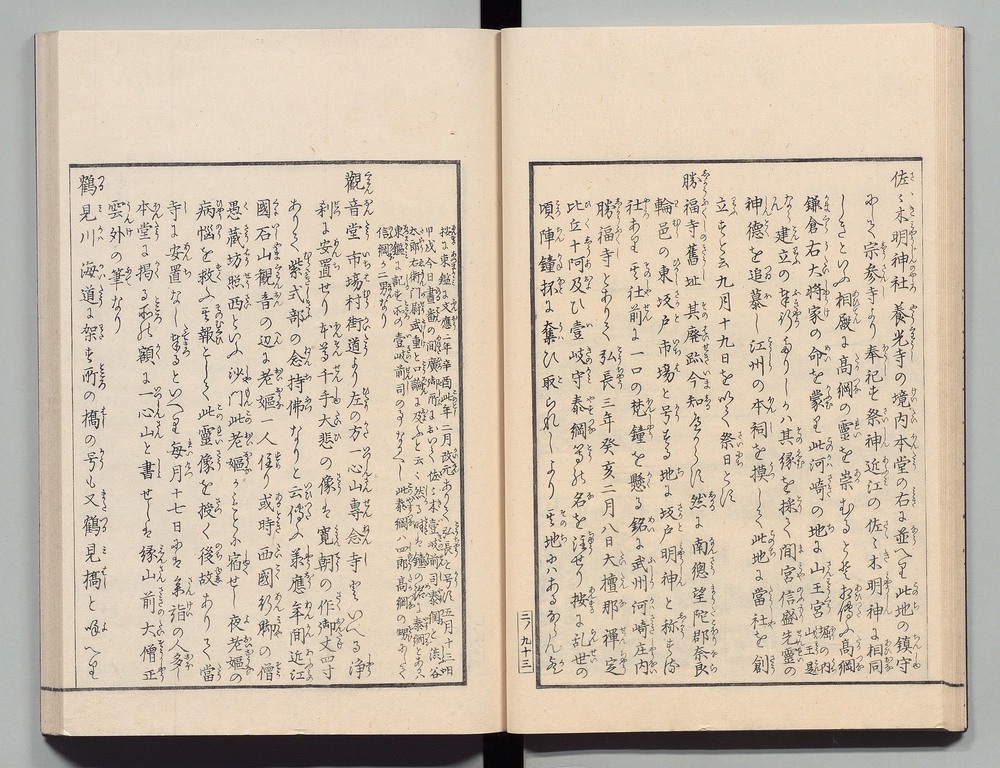 佐々木明神社 養光寺の境内本堂の右に並へり此地の鎮守
にして宗参寺より奉祀す祭神近江の佐々木明神に相同
しきといふ相殿に高綱の霊を崇むるとそ相傳ふ高綱
鎌倉右大将家の命を蒙り此河崎の地に山王宮堀の内山王是
なり建立の
其縁を採く間宮信盛先霊の
神徳を追慕し江州の本祠を摸して此地に當社を創
立すと云九月十九日を以て祭日とす
勝福寺舊址 其廃跡今知へからす然に南總望陀郡奈良
輪邑の東坂戸市場と号する地に坂戸明神と称する
社あり其社前に一口の梵鐘を懸る銘に武州河崎庄内
勝福寺とありて弘長三年癸亥二月八日大檀那禪定
比丘十阿及ひ壹岐守泰綱等の名を注せり按に乱世の
頃陣鐘抔に奪ひ取られしより其地にあるなるへし
二ノ九十三
按に東鑑に文應二年辛酉此年二月改元ありて弘長と号す五月十三日
甲戌今日晝番の間廣御所において佐々木壹岐前司泰綱と渋谷
太郎右衛門尉武重と口論に及ふと云々
東鑑に記す所の壹岐前司の事なるへし此泰綱ハ四郎高綱の甥にして
信綱か二男なり
觀音堂 市場村街道より左の方一心山專念寺といへる浄
刹に安置せり本尊千手大悲の像は寛朝の作御丈四寸
ありて紫式部の念持佛なりと云傳ふ承應年間近江
國石山觀音の辺に老嫗一人住り或時西國行脚の僧
愚蔵坊照西といふ沙門此老嫗かもとに宿せし夜老嫗の
病悩を救ふ其報として此靈像を授く後故ありて當
寺に安置なし奉るといへり毎月十七日にハ参詣の人多し
本堂に掲る所の額に一心山と書せしは縁山前大僧正
雲外の筆なり
鶴見川 海道に架す所の橋の号も又鶴見橋と唱へり